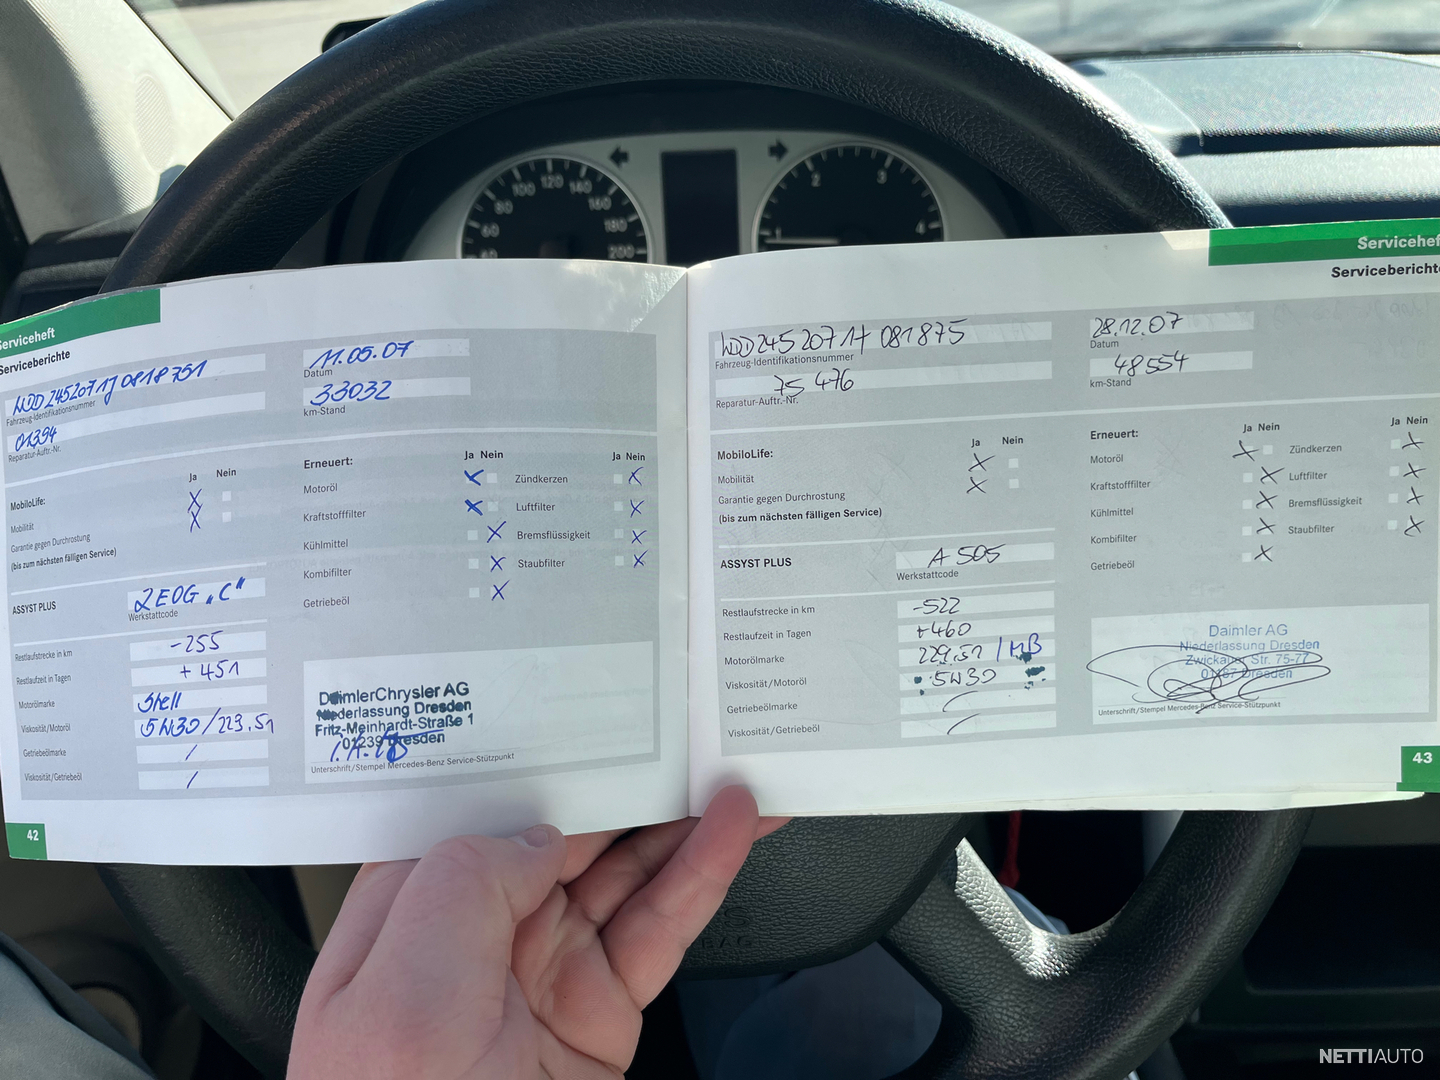 100 120 140
80 160
60 180
200
2 3
1 4
Serviceheft
Serviceberichte
11.05.07
Datum
Fahrzeug-Identifikationsnummer
33032
km-Stand
01394
Reparatur-Auftr.-Nr.
Ja Nein
MobiloLife:
Mobilität
Garantie gegen Durchrostung
(bis zum nächsten fälligen Service)
Erneuert: Ja Nein Ja Nein
Motoröl Zündkerzen
Kraftstofffilter Luftfilter
Kühlmittel Bremsflüssigkeit
Kombifilter Staubfilter
Getriebeöl
ASSYST PLUS
Werkstattcode
Restlaufstrecke in km -255
Restlaufzeit in Tagen +451
Motorölmarke Shell
Viskosität/Motoröl 5W30/229.51
Getriebeölmarke /
Viskosität/Getriebeöl /
DaimlerChrysler AG
Niederlassung Dresden
Fritz-Meinhardt-Straße 1
01239 Dresden
Unterschrift/Stempel Mercedes-Benz Service-Stützpunkt
42
Serviceheft
Serviceberichte
WDD 245 207 1J 081875
Fahrzeug-Identifikationsnummer
75 476
Reparatur-Auftr.-Nr.
28.12.07
Datum
48554
km-Stand
Ja Nein
MobiloLife:
Mobilität
Garantie gegen Durchrostung
(bis zum nächsten fälligen Service)
Erneuert: Ja Nein Ja Nein
Motoröl Zündkerzen
Kraftstofffilter Luftfilter
Kühlmittel Bremsflüssigkeit
Kombifilter Staubfilter
Getriebeöl
ASSYST PLUS A 505
Werkstattcode
Restlaufstrecke in km -522
Restlaufzeit in Tagen +460
Motorölmarke 229.51 / MB
Viskosität/Motoröl 5W30
Getriebeölmarke /
Viskosität/Getriebeöl /
Daimler AG
Niederlassung Dresden
Zwickauer Str. 75-77
01187 Dresden
Unterschrift/Stempel Mercedes-Benz Service-Stützpunkt
43
NETTIAUTO